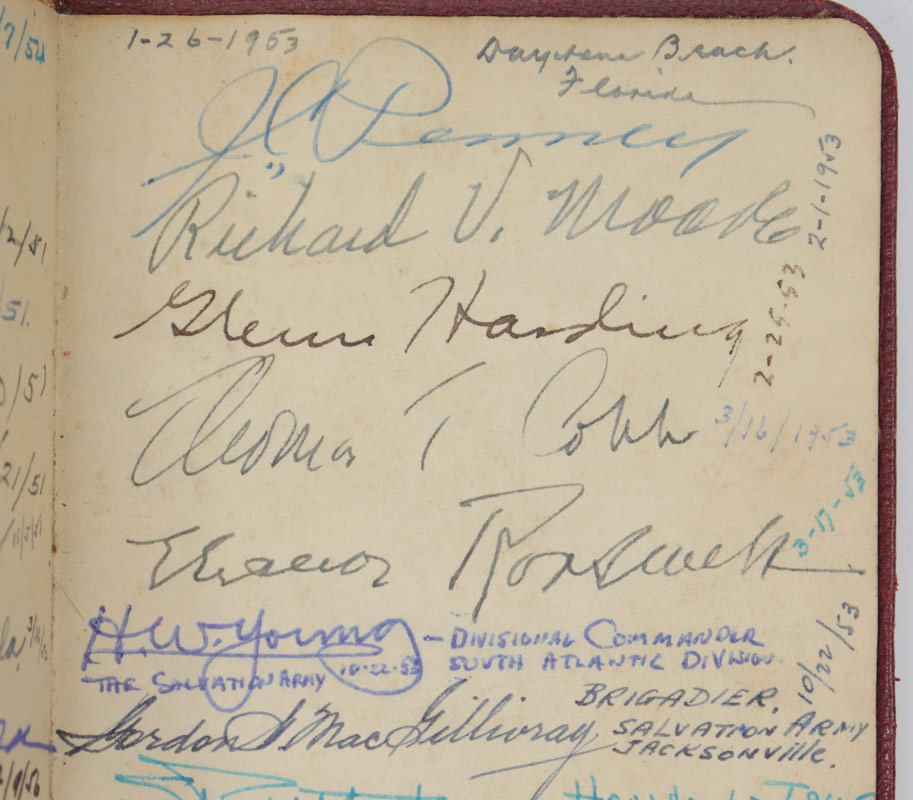 1-26-1953 Daytona Beach.
Florida
J C Penney
Richard V. Moore 2-1-1953
Glenn Harding 2-25-53
Thomas T Cobb 3/16/1953
Eleanor Roosevelt 3-17-53
H.W. Young — DIVISIONAL COMMANDER
THE SALVATION ARMY 10-22-53 SOUTH ATLANTIC DIVISION.
BRIGADIER, 10/22/53
Gordon S MacGillivray SALVATION ARMY
JACKSONVILLE.
7/54
2/51
51.
/51
21/51